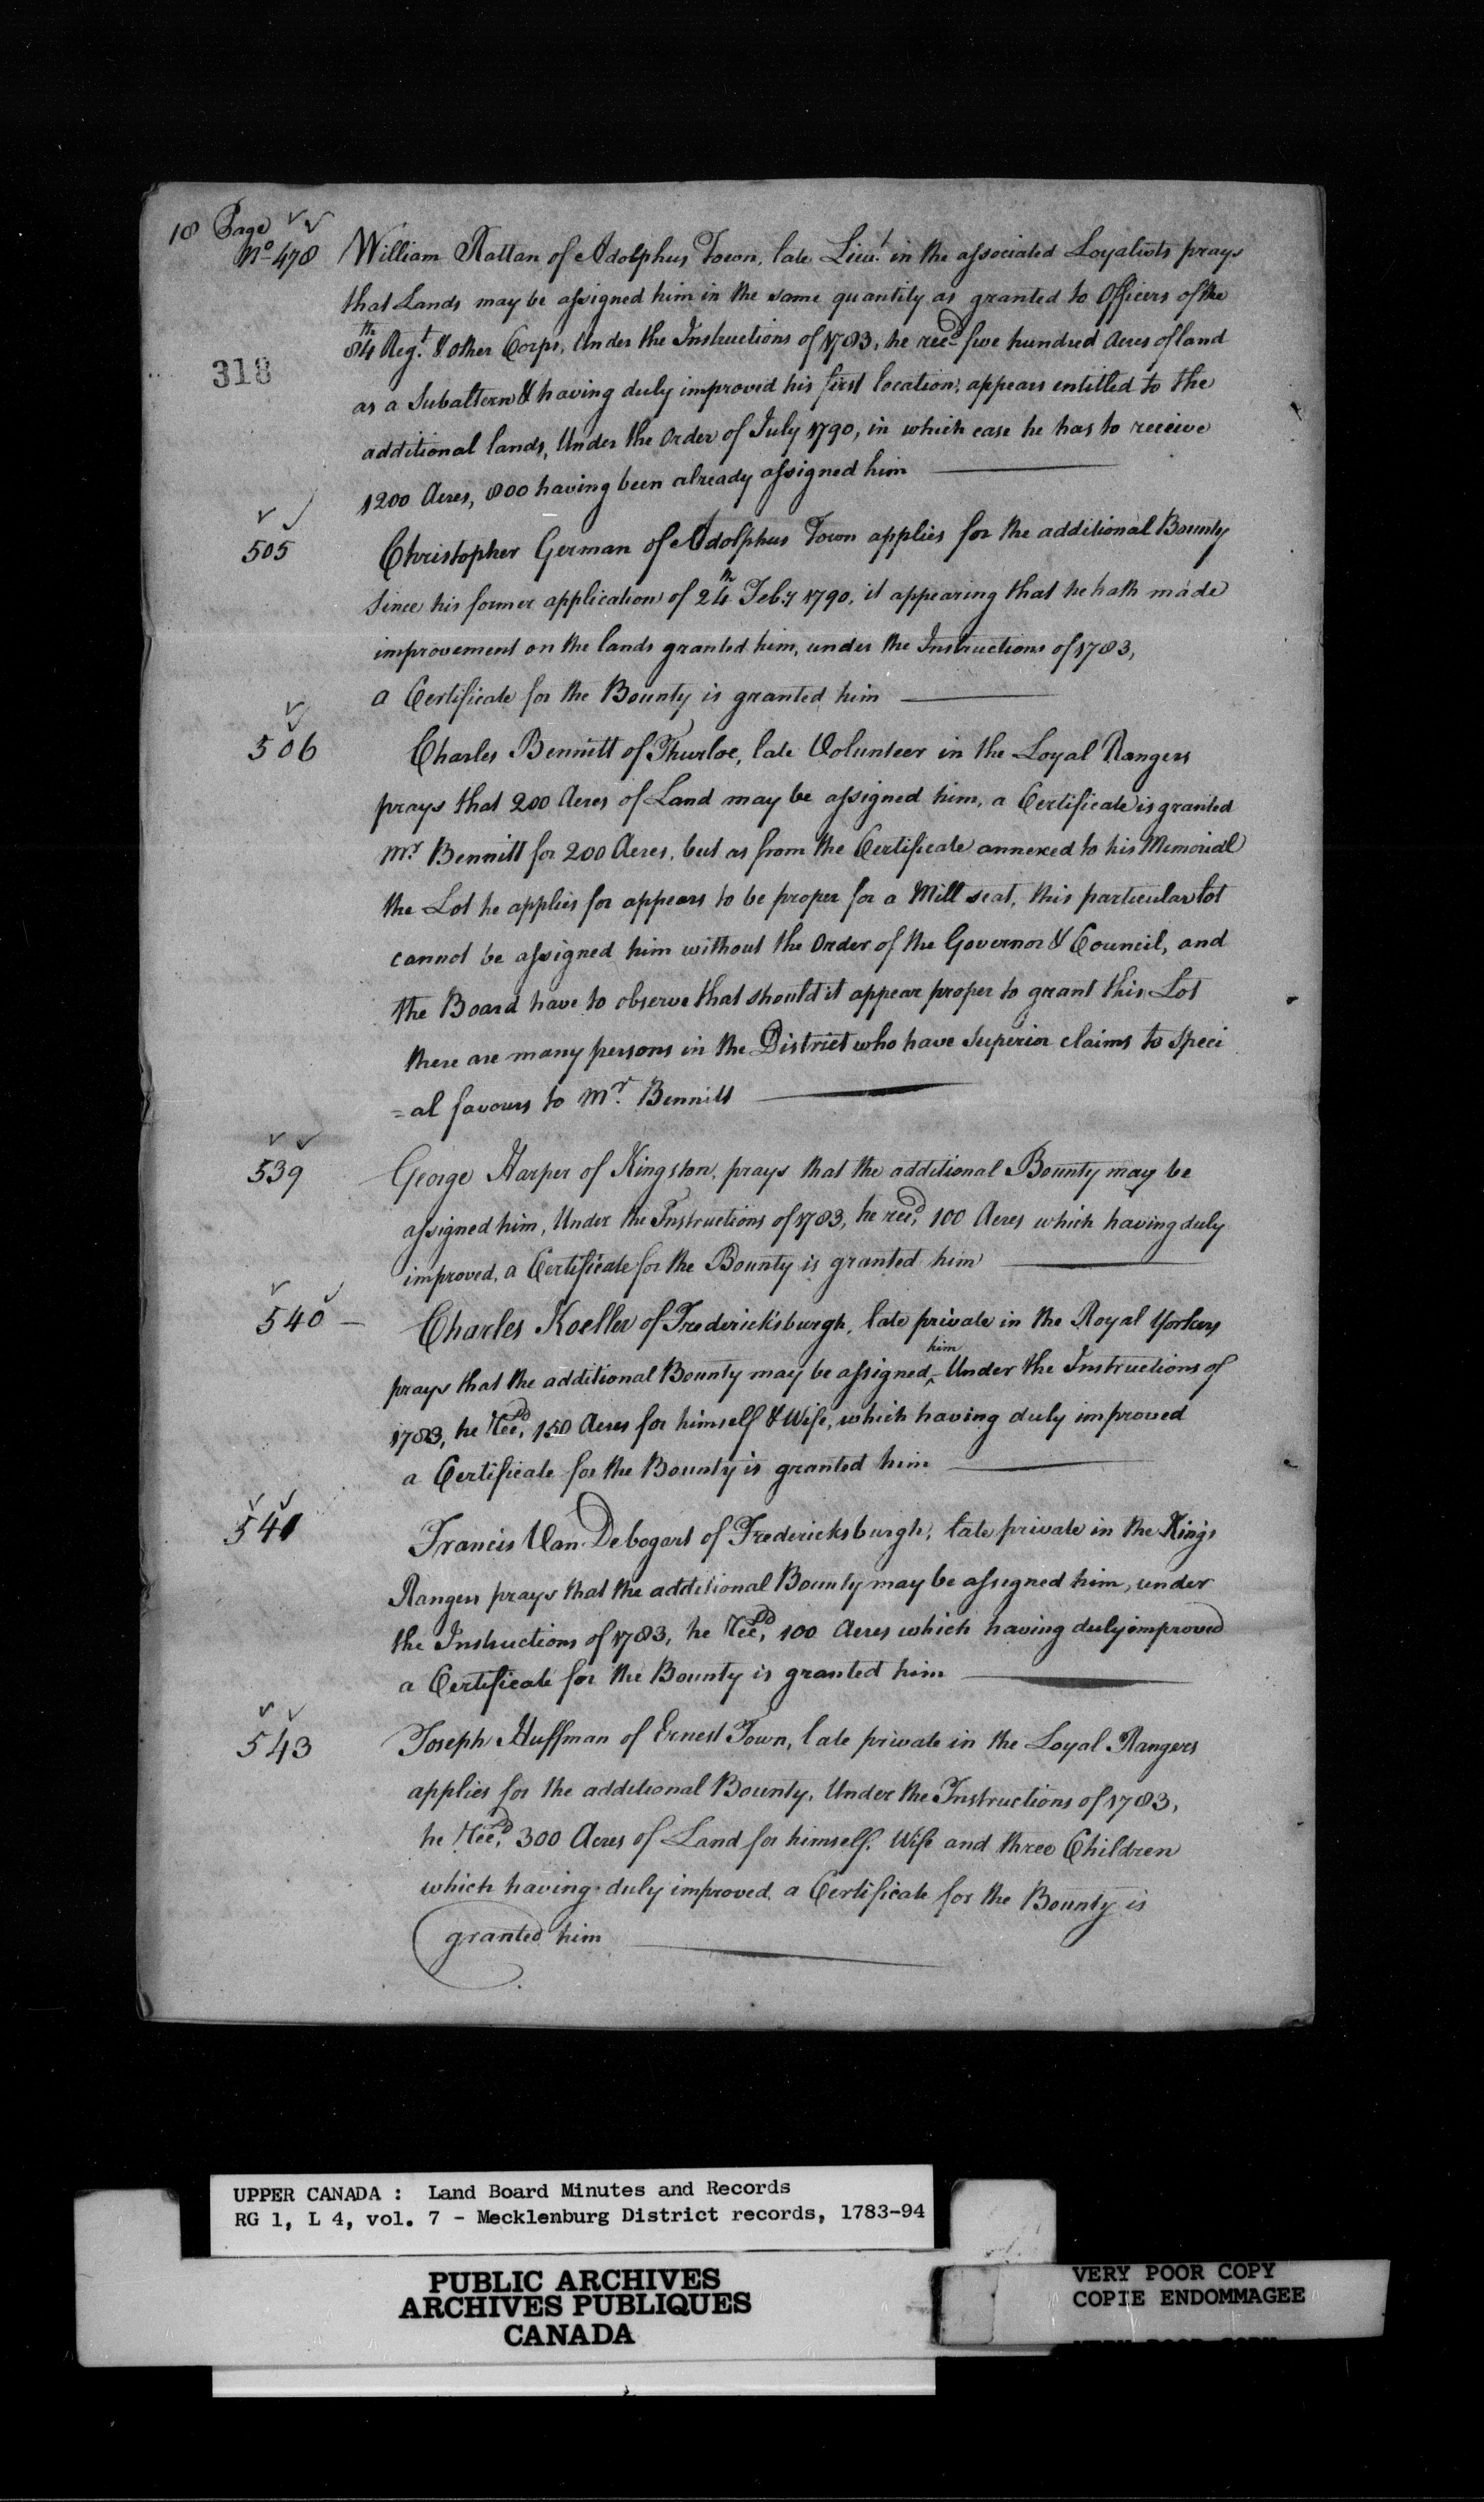 18 Page
No 478 William Rattan of Adolphus Town, late Lieut. in the associated Loyalists prays
that Lands may be assigned him in the same quantity as granted to Officers of the
84th Regt. & other Corps, Under the Instructions of 1783, he recd. five hundred Acres of land
318
as a Subaltern & having duly improved his first location, appears entitled to the
additional lands, Under the Order of July 1790, in which case he has to receive
1200 Acres, 800 having been already assigned him
505 Christopher German of Adolphus Town applies for the additional Bounty
Since his former application of 24th Feby 1790, it appearing that he hath made
improvement on the lands granted him, under the Instructions of 1783,
a Certificate for the Bounty is granted him
506 Charles Bennitt of Thurloe, late Volunteer in the Loyal Rangers
prays that 200 Acres of Land may be assigned him, a Certificate is granted
Mr Bennitt for 200 Acres, but as from the Certificate annexed to his Memorial
the Lot he applies for appears to be proper for a Mill seat, this particular lot
cannot be assigned him without the Order of the Governor & Council, and
the Board have to observe that should it appear proper to grant this Lot
there are many persons in the District who have Superior claims to Speci
=al favours to Mr. Bennitt
539 George Harper of Kingston, prays that the additional Bounty may be
assigned him, Under the Instructions of 1783, he recd, 100 Acres which having duly
improved, a Certificate for the Bounty is granted him
540 – Charles Koeller of Frederick'sburgh, late private in the Royal Yorkers
prays that the additional Bounty may be assigned, ^him Under the Instructions of
1783, he Recd, 150 Acres for himself & Wife, which having duly improved
a Certificate for the Bounty is granted him
541 Francis Van Debogart of Fredericksburgh, late private in the King's
Rangers prays that the additional Bounty may be assigned him, under
the Instructions of 1783, he Recd, 100 Acres which having duly improved
a Certificate for the Bounty is granted him
543 Joseph Huffman of Ernest Town, late private in the Loyal Rangers
applies for the additional Bounty, Under the Instructions of 1783,
he Recd, 300 Acres of Land for himself, Wife and three Children
which having duly improved, a Certificate for the Bounty is
granted him
UPPER CANADA : Land Board Minutes and Records
RG 1, L 4, vol. 7 - Mecklenburg District records, 1783-94
PUBLIC ARCHIVES
ARCHIVES PUBLIQUES
CANADA
VERY POOR COPY
COPIE ENDOMMAGEE
VERY POOR COPY